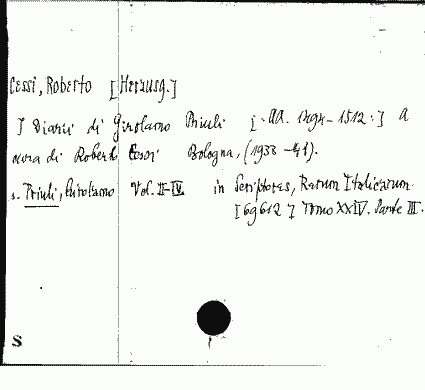 Cessi, Roberto [Herausg.]
I Diarii di Girolamo Priuli [:AA. 1494-1512:] A
cura di Roberto Cessi Bologna, (1933-41).
s. Priuli, Girolamo Vol. II-IV in Scriptores, Rerum Italicarum
[69612] Tomo XXIV. Parte III.
S